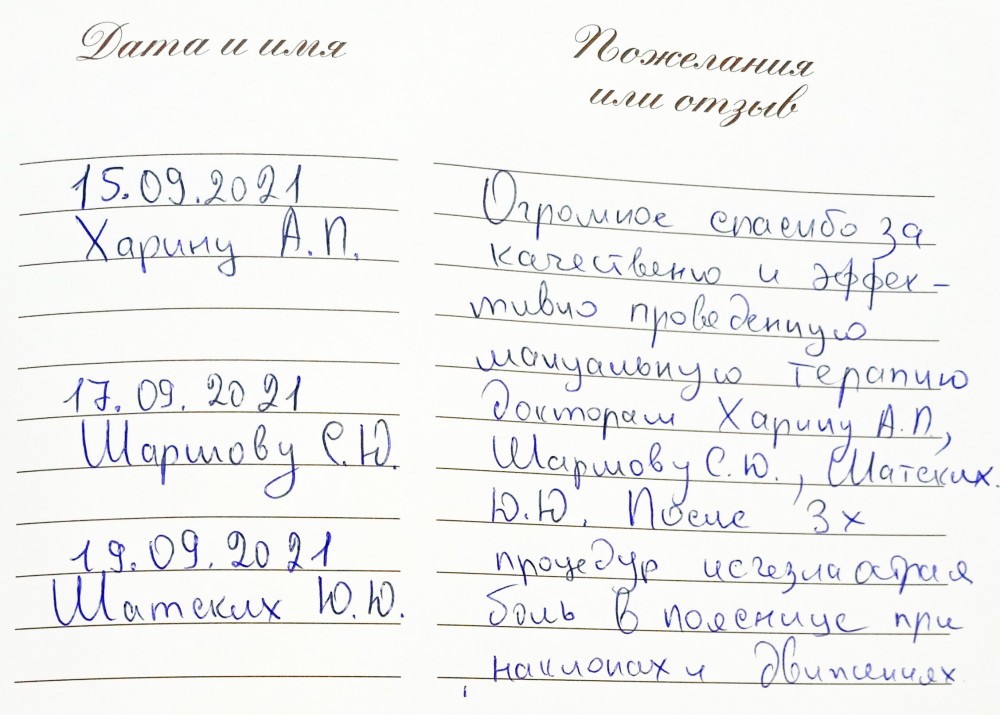 Дата и имя
15.09.2021
Харину А.П.
17.09.2021
Шаршову С.Ю.
19.09.2021
Шатских Ю.Ю.
Пожелания
или отзыв
Огромное спасибо за
качественно и эффек-
тивно проведенную
мануальную терапию
докторам Харину А.П.,
Шаршову С.Ю., Шатских
Ю.Ю. После 3х
процедур исчезла острая
боль в пояснице при
наклонах и движениях.